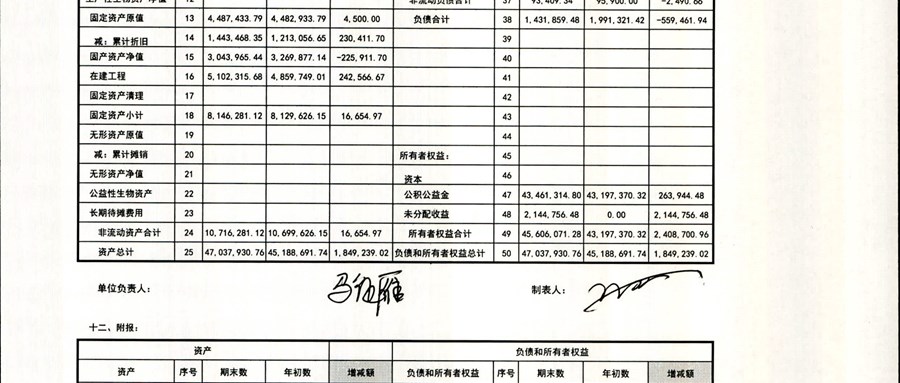 固定资产原值 13 4,487,433.79 4,482,933.79 4,500.00 负债合计 38 1,431,859.48 1,991,321.42 -559,461.94
减：累计折旧 14 1,443,468.35 1,213,056.65 230,411.70 39
固产资产净值 15 3,043,965.44 3,269,877.14 -225,911.70 40
在建工程 16 5,102,315.68 4,859,749.01 242,566.67 41
固定资产清理 17 42
固定资产小计 18 8,146,281.12 8,129,626.15 16,654.97 43
无形资产原值 19 44
减：累计摊销 20 所有者权益： 45
无形资产净值 21 资本 46
公益性生物资产 22 公积公益金 47 43,461,314.80 43,197,370.32 263,944.48
长期待摊费用 23 未分配收益 48 2,144,756.48 0.00 2,144,756.48
非流动资产合计 24 10,716,281.12 10,699,626.15 16,654.97 所有者权益合计 49 45,606,071.28 43,197,370.32 2,408,700.96
资产总计 25 47,037,930.76 45,188,691.74 1,849,239.02 负债和所有者权益总计 50 47,037,930.76 45,188,691.74 1,849,239.02
单位负责人： 制表人：
十二、附报：
资产 负债和所有者权益
资产 序号 期末数 年初数 增减额 负债和所有者权益 序号 期末数 年初数 增减额